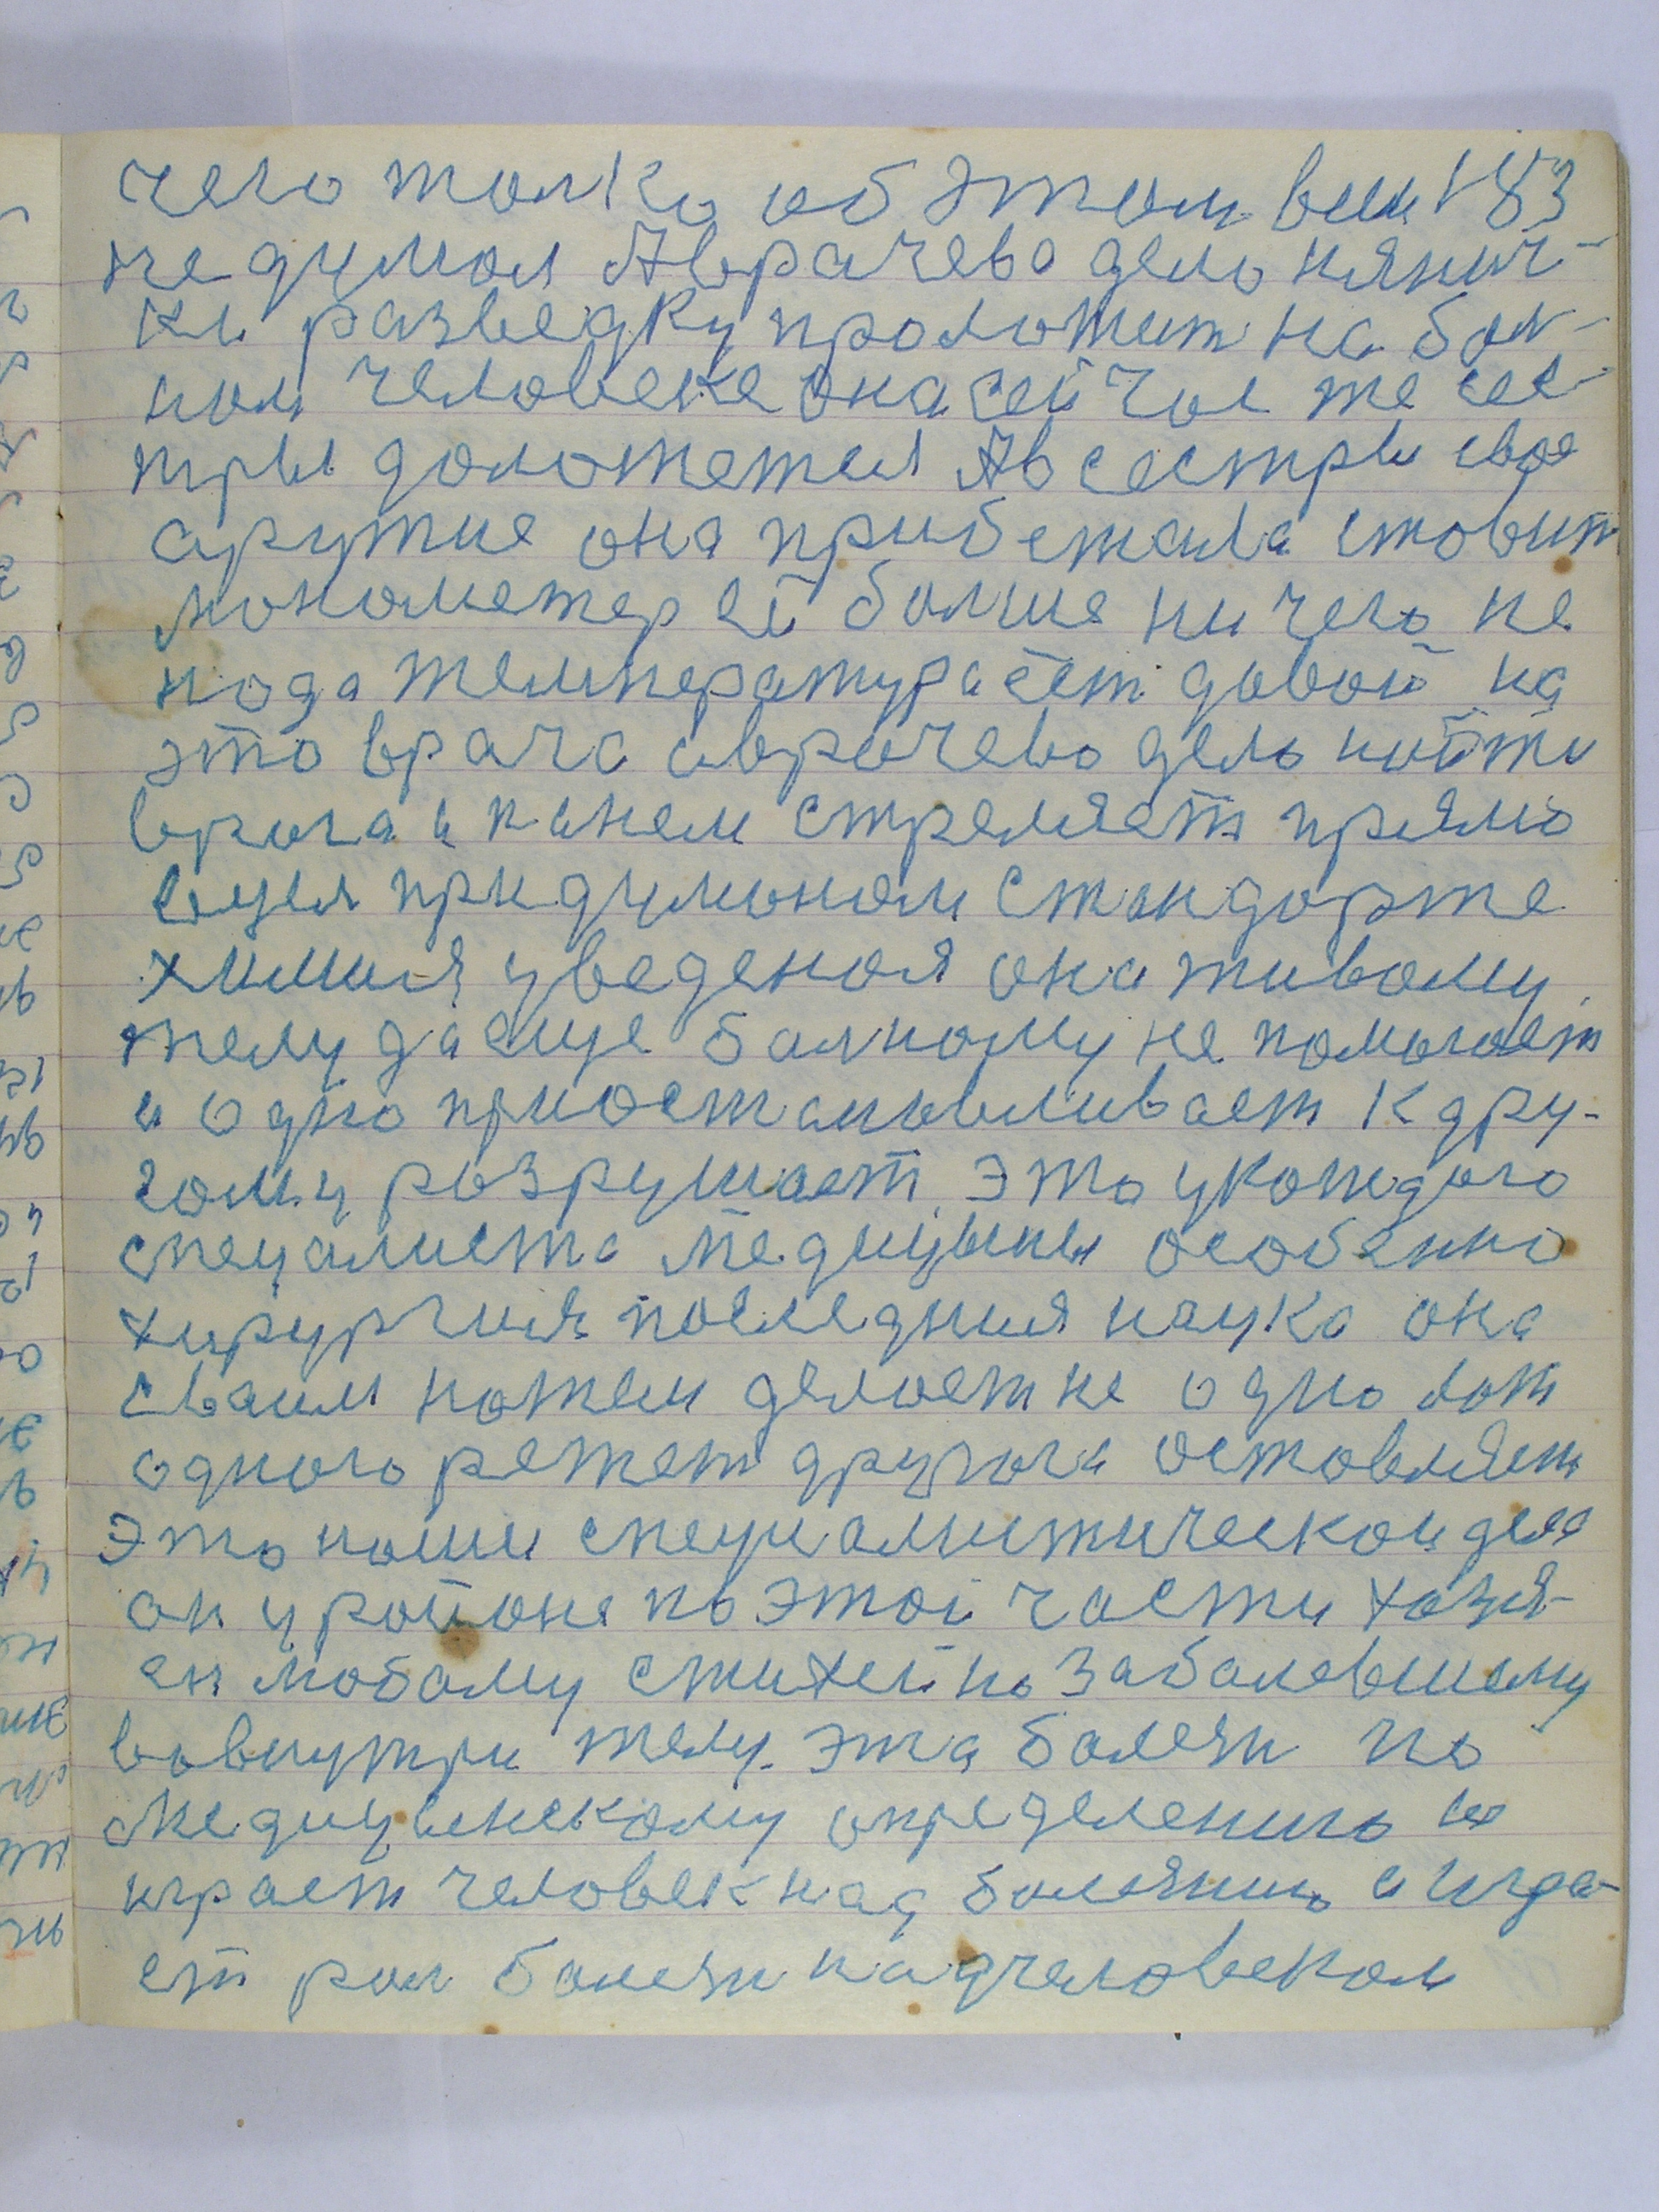 чего толко об этом всем 183
не думол Аврачево дело нянич-
ки разведку проложит на бол-
ном человеке она сейчас же сес-
тры доложется Ав сестры свое
аружие она прибежала стовит
монометер ей болше ни чего не
нода температура ест довой на
это врача аврачево дело нойти
врога и панем стреляет прямо
вцел придуманом стандорте
химия уведеная она живому
телу да еще болному не помогает
и одно приостановливает к дру-
гому розрушает это укождого
спецалиста медицыны особенно
хирургия последния наука она
сваим ножем делоет не одно вот
одного режет другога остовляет
это наши специалистической дела
он у ройоне по этой части хозя-
ен любому стихейно заболевшему
вовнутри телу эта болезн по
медицынскому определению
играет человек над болезнию а игра-
ет рол болезн надчеловеком